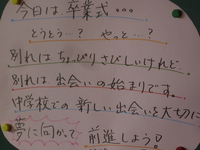 今日は、卒業式…
どうとう…? やっと…?
別れはちょっぴりさびしいけれど、
別れは出会いの始まりです。
中学校での新しい出会いを大切に
夢に向かって前進しよう!